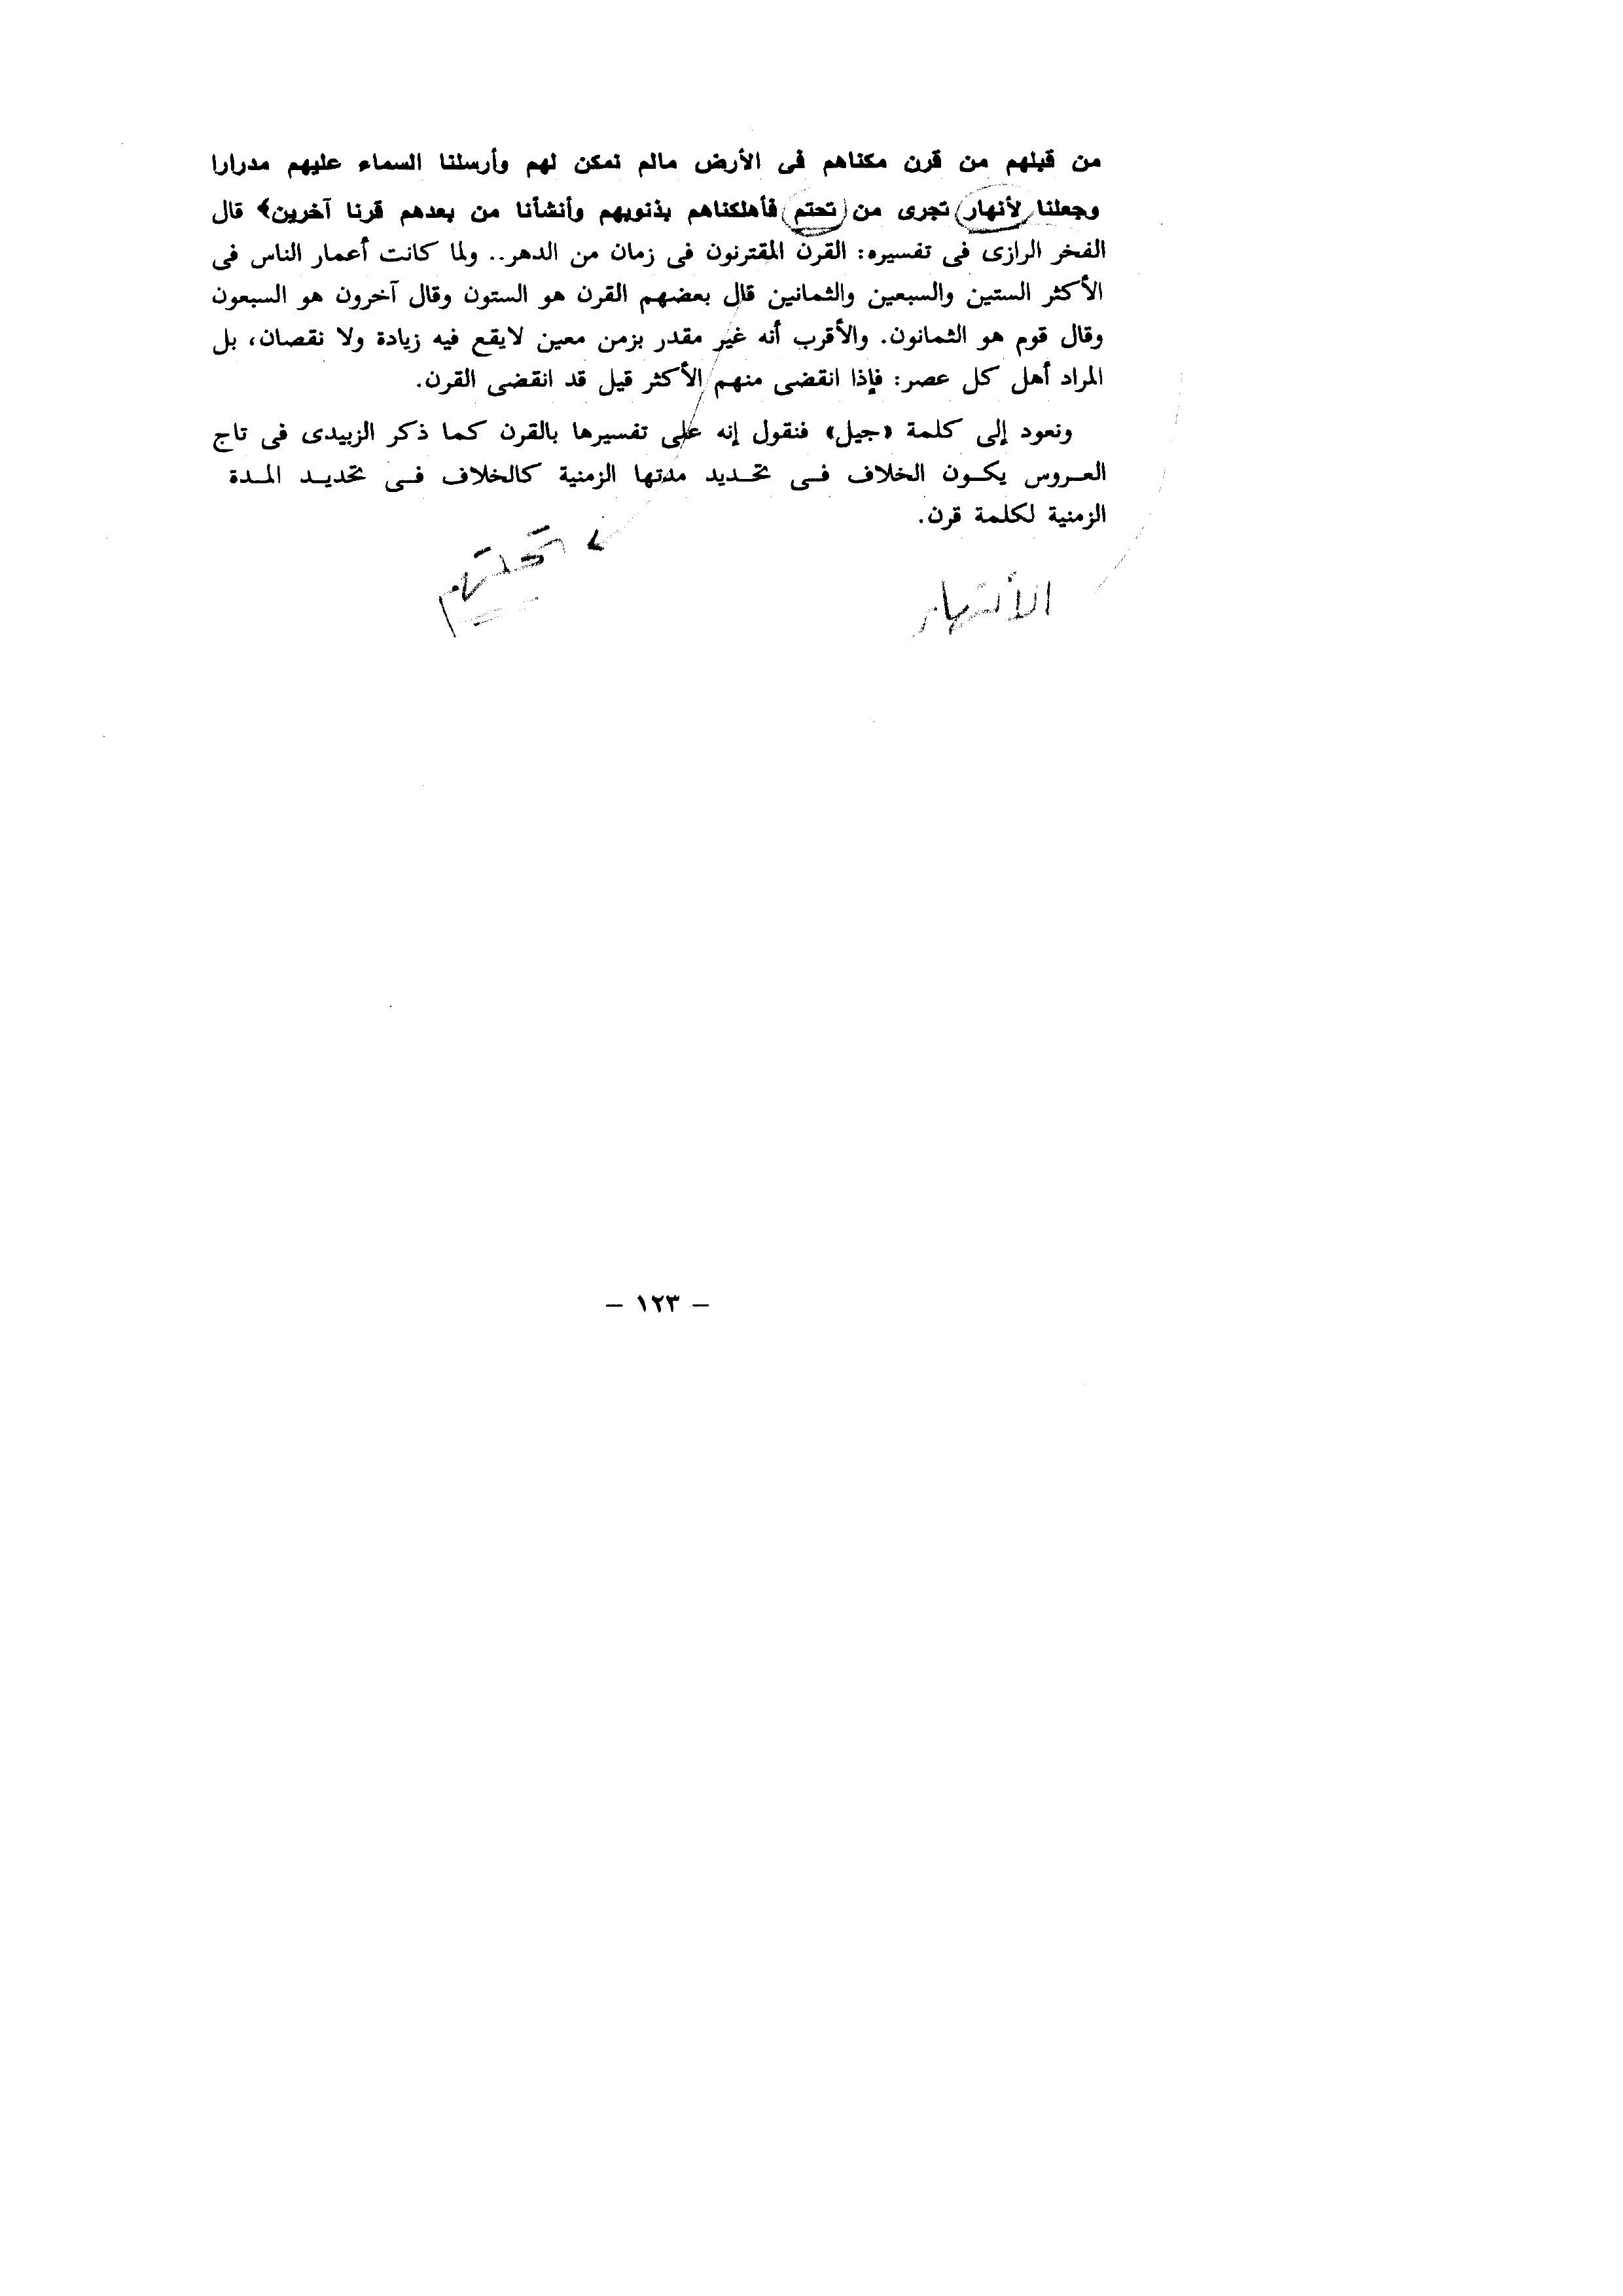 من قبلهم من قرن مكناهم فى الأرض مالم نمكن لهم وأرسلنا السماء عليهم مدرارا
وجعلنا لأنهار تجرى من تحتم فأهلكناهم بذنوبهم وأنشأنا من بعدهم قرنا آخرين﴾ قال
الفخر الرازى فى تفسيره: القرن المقترنون فى زمان من الدهر.. ولما كانت أعمار الناس فى
الأكثر الستين والسبعين والثمانين قال بعضهم القرن هو الستون وقال آخرون هو السبعون
وقال قوم هو الثمانون. والأقرب أنه غير مقدر بزمن معين لايقع فيه زيادة ولا نقصان، بل
المراد أهل كل عصر: فإذا انقضى منهم الأكثر قيل قد انقضى القرن.
ونعود إلى كلمة «جيل» فنقول إنه على تفسيرها بالقرن كما ذكر الزبيدى فى تاج
العـروس يكـون الخلاف فـى تحـديد مدتها الزمنية كالخلاف فـى تحديـد المـدة
الزمنية لكلمة قرن.
تحتهم
الأنهار
– ١٢٣ –